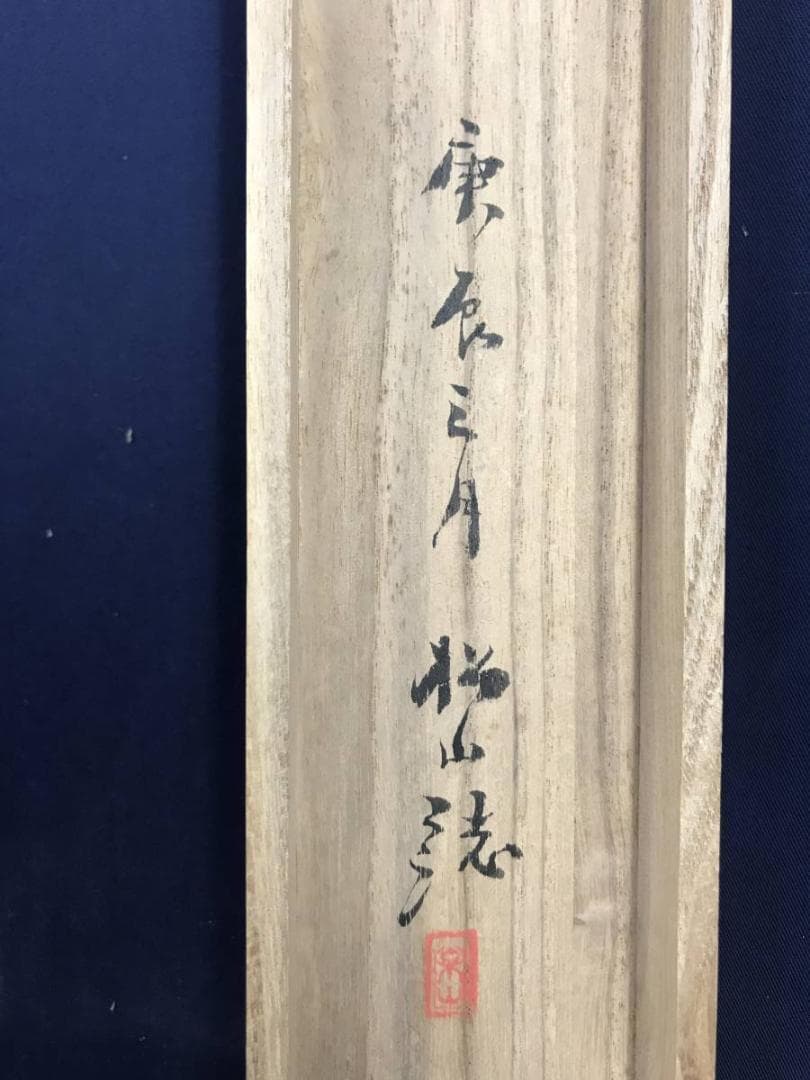 庚辰三月 松山誌